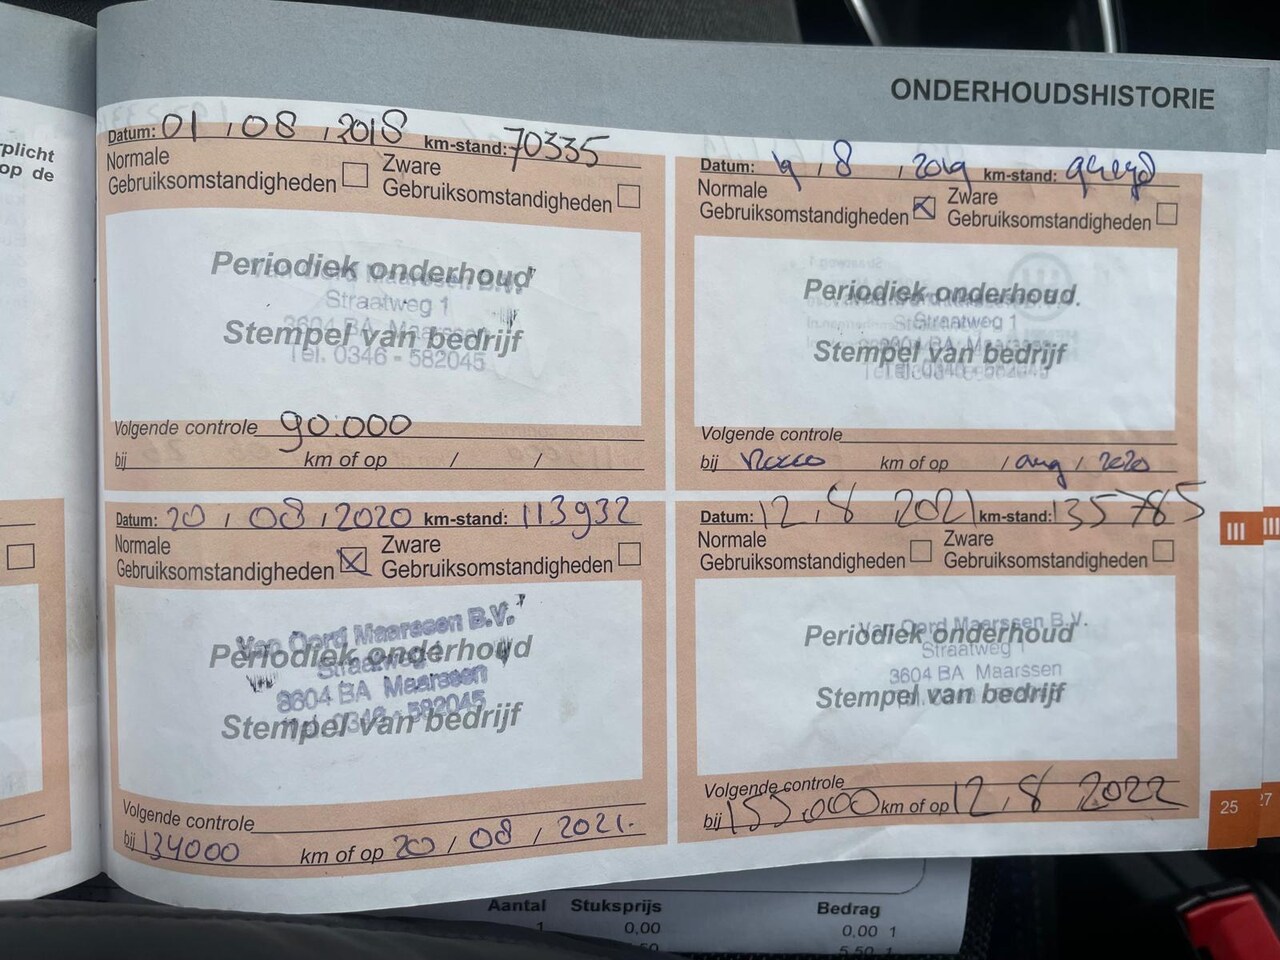 plicht
op de
ONDERHOUDSHISTORIE
Datum: 01 / 08 / 2018 km-stand: 70335
Normale Gebruiksomstandigheden
Zware Gebruiksomstandigheden
Periodiek onderhoud
Straatweg 1
3604 BA Maarssen
Stempel van bedrijf
Tel. 0346 - 582045
Volgende controle 90.000
bij km of op / /
Datum: 19 / 8 / 2019 km-stand:
Normale Gebruiksomstandigheden
Zware Gebruiksomstandigheden
Periodiek onderhoud
Straatweg 1
3604 BA Maarssen
Stempel van bedrijf
Tel. 0346 - 582045
Volgende controle
bij km of op / aug / 2020
Datum: 20 / 08 / 2020 km-stand: 113932
Normale Gebruiksomstandigheden
Zware Gebruiksomstandigheden
Van Oord Maarssen B.V.
Periodiek onderhoud
Straatweg 1
3604 BA Maarssen
Tel. 0346 - 582045
Stempel van bedrijf
Volgende controle
bij 134000 km of op 20 / 08 / 2021.
Datum: 12 / 8 2021 km-stand: 135785
Normale Gebruiksomstandigheden
Zware Gebruiksomstandigheden
Van Oord Maarssen B.V.
Periodiek onderhoud
Straatweg 1
3604 BA Maarssen
Stempel van bedrijf
Volgende controle
bij 155.000 km of op 12 / 8 2022
III
25
27
Aantal Stuksprijs Bedrag
1 0,00 0,00 1
5,50 1